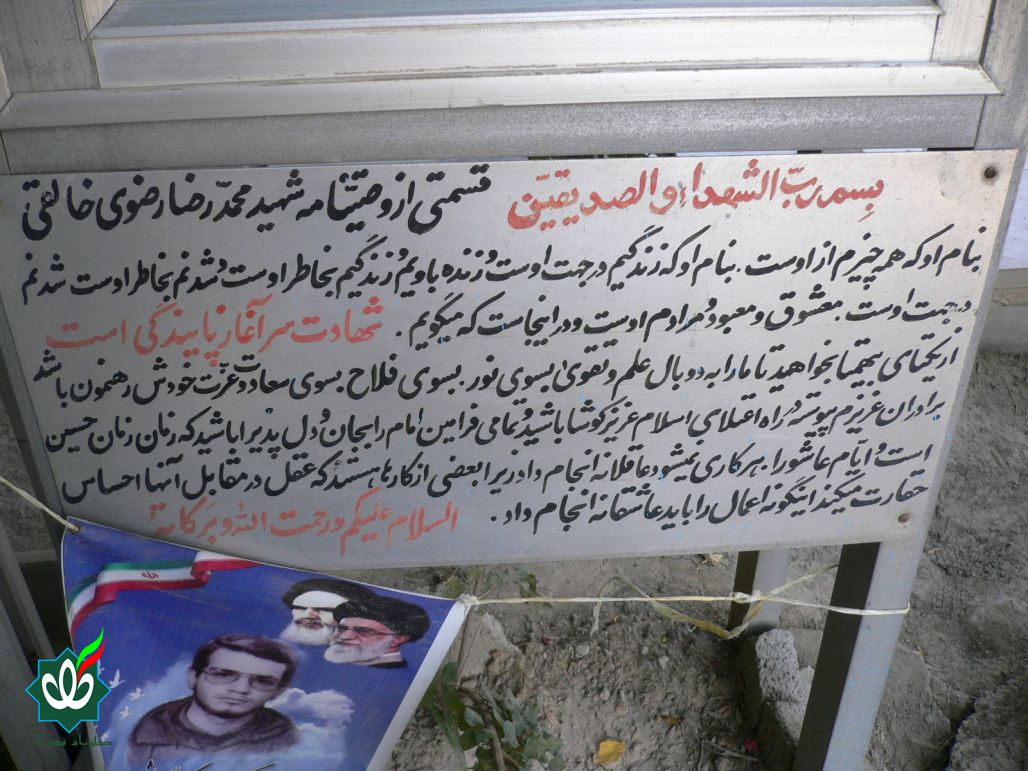 بسم رب الشهداء و الصدیقین قسمتی از وصیتنامه شهید محمّد رضا رضوی خالقی
بنام او که همه چیزم از اوست. بنام او که زندگیم در جهت اوست و زنده باویم و زندگیم بخاطر اوست و شدنم بخاطر اوست شدنم
در جهت اوست. معشوق و معبود و مرادم اوست و در اینجاست که میگویم. شهادت سر آغاز پایندگی است
از یکتای بیهمتا بخواهید تا ما را به دو بال علم و تقوی بسوی نور. بسوی فلاح بسوی سعادت و عزّت خودش رهنمون باشد
برادران عزیزم پیوسته در راه اعتلای اسلام عزیز کوشا باشید و تمامی فرامین امام را بجان و دل پذیرا باشید که زمان زمان حسین
است و ایّام عاشورا. هر کاری نمیشود عاقلانه انجام داد زیرا بعضی از کارها هستند که عقل در مقابل آنها احساس
حقارت میکند اینگونه اعمال را باید عاشقانه انجام داد. السلام علیکم و رحمت الله و برکاته